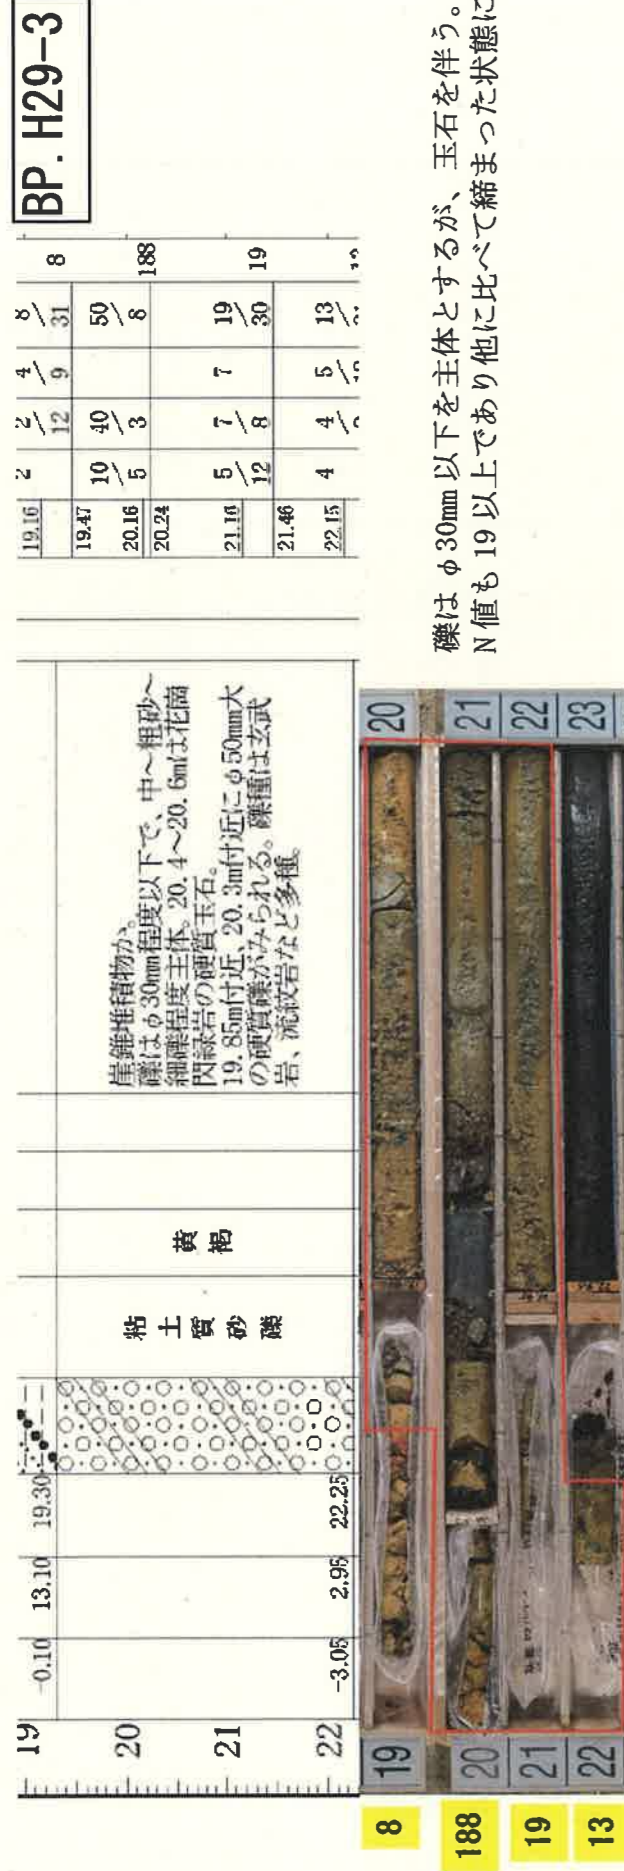 BP. H29-3
19
20
21
22
-0.10 13.10 19.30
-3.05 2.95 22.25
粘土質砂礫
黄褐
崖錐堆積物か。
礫はφ30mm程度以下で、中～粗砂～
細礫程度主体。20.4～20.6mは花崗
閃緑岩の硬質玉石。
19.85m付近、20.3m付近にφ50mm大
の硬質礫がみられる。礫種は玄武
岩、流紋岩など多種。
19.16 2 2/12 4/9 8/31 8
19.47
20.16 10/5 40/3 50/8 188
20.24
21.16 5/12 7/8 7 19/30 19
21.46
22.15 4 4 5 13
8 19 20
188 20 21
19 21 22
13 22 23
礫はφ30mm以下を主体とするが、玉石を伴う。
N値も19以上であり他に比べて締まった状態に